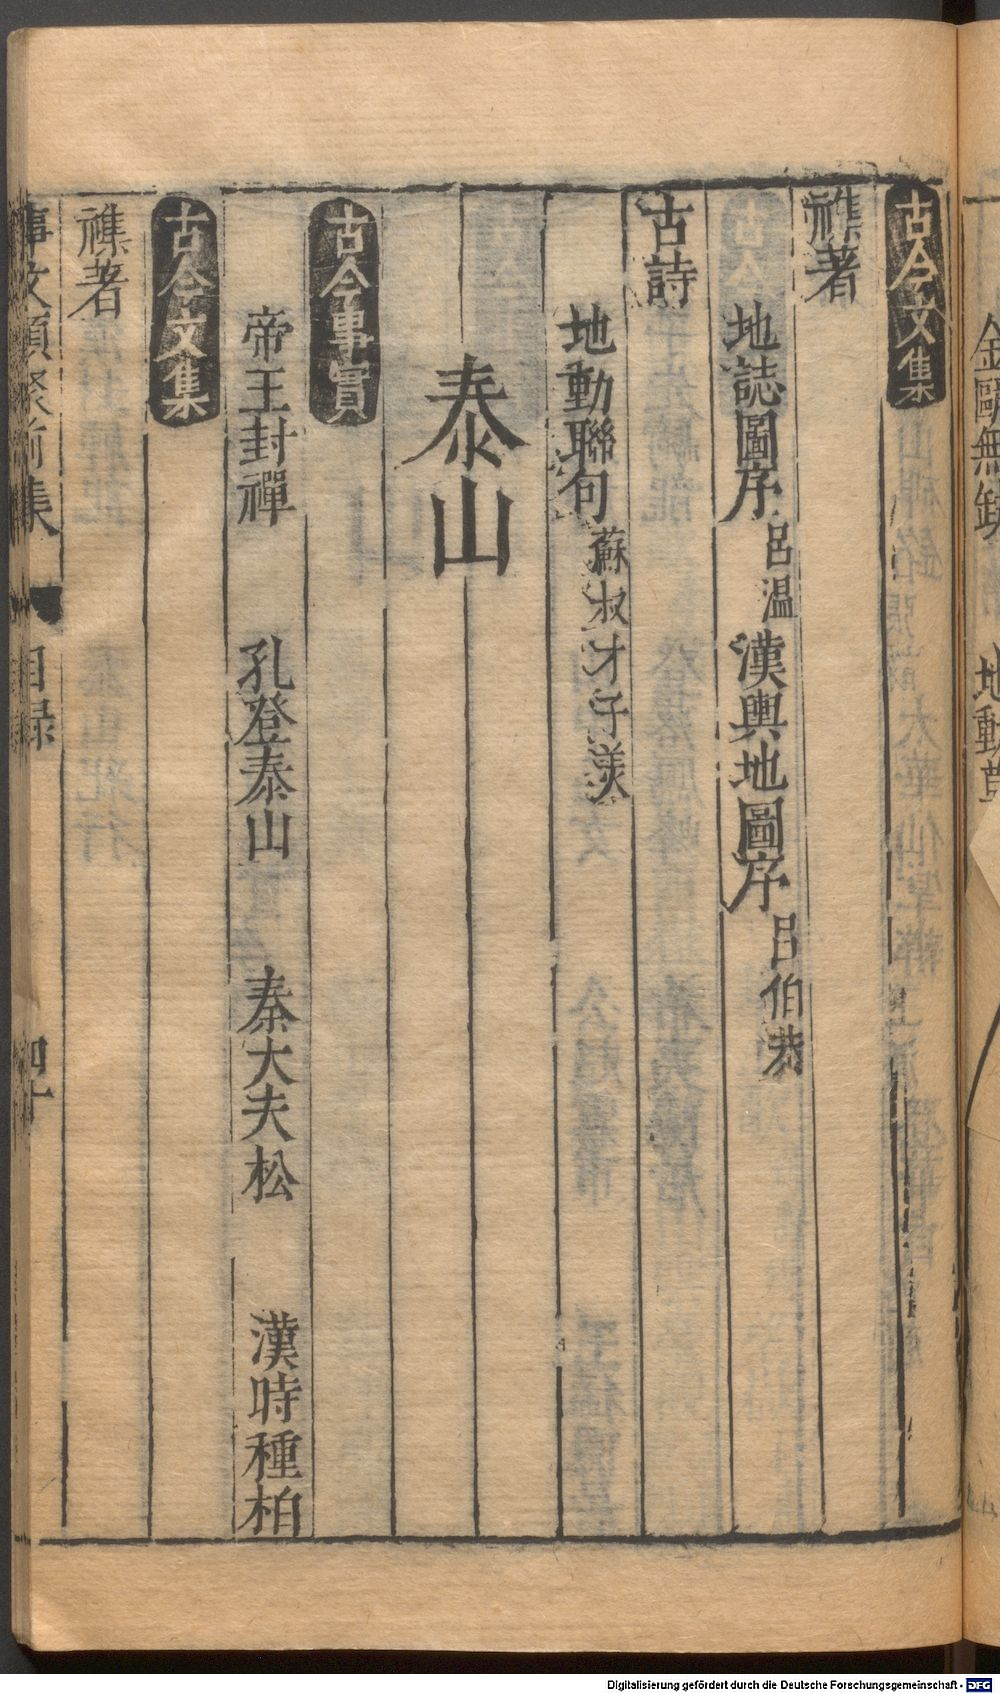 金甌無缺 地動
古今文集
襍著
地誌圖序 呂温 漢輿地圖序 呂伯恭
古詩
地動聯句 蘇叔才子美
泰山
古今事實
帝王封禪 孔登泰山 秦大夫松 漢時種柏
古今文集
襍著
事文類聚前集 目録 四十
Digitalisierung gefördert durch die Deutsche Forschungsgemeinschaft - DFG